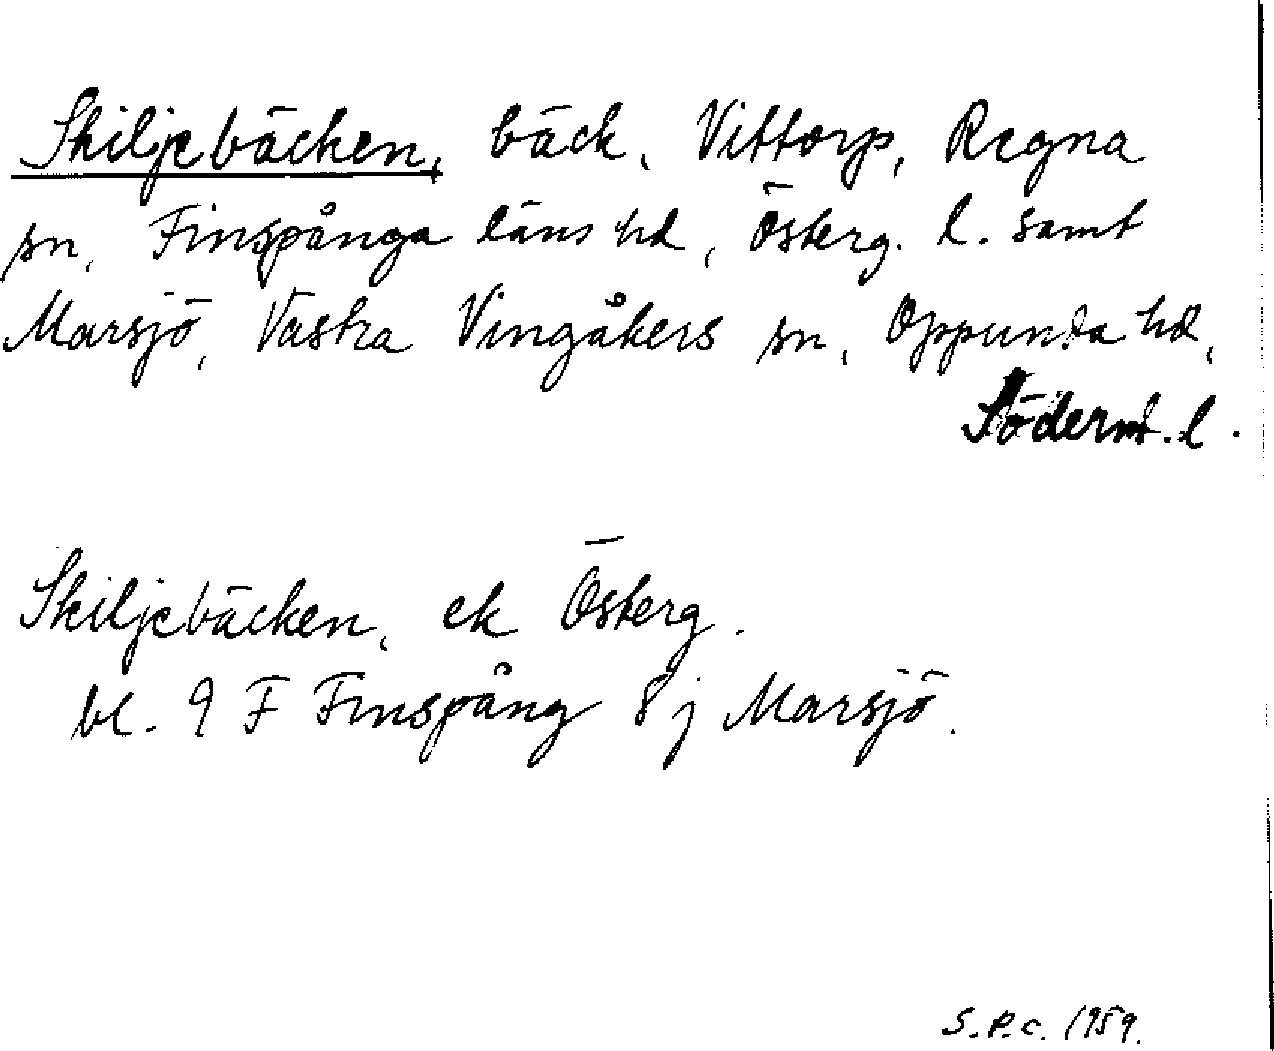 Skiljebäcken, bäck, Vittorp, Regna
sn, Finspånga läns hd, Österg. l. samt
Marsjö, Västra Vingåkers sn, Oppunda hd,
Söderml. l.
Skiljebäcken, ek Österg.
bl. 9 F Finspång 8 j Marsjö.
S.P.C. 1959.